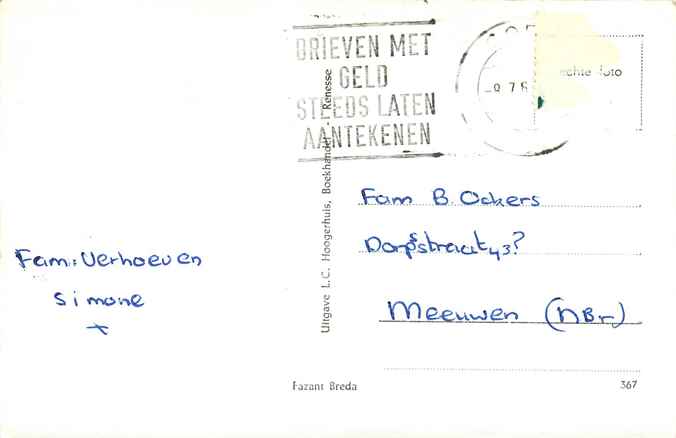 BRIEVEN MET
GELD
STEEDS LATEN
AANTEKENEN
echte foto
Uitgave L.C. Hoogerhuis, Boekhandel - Renesse
Fam B. Ockers
Dorpsstraat 43?
Meeuwen (NBr)
Fam: Verhoeven
Simone
x
Fazant Breda
367